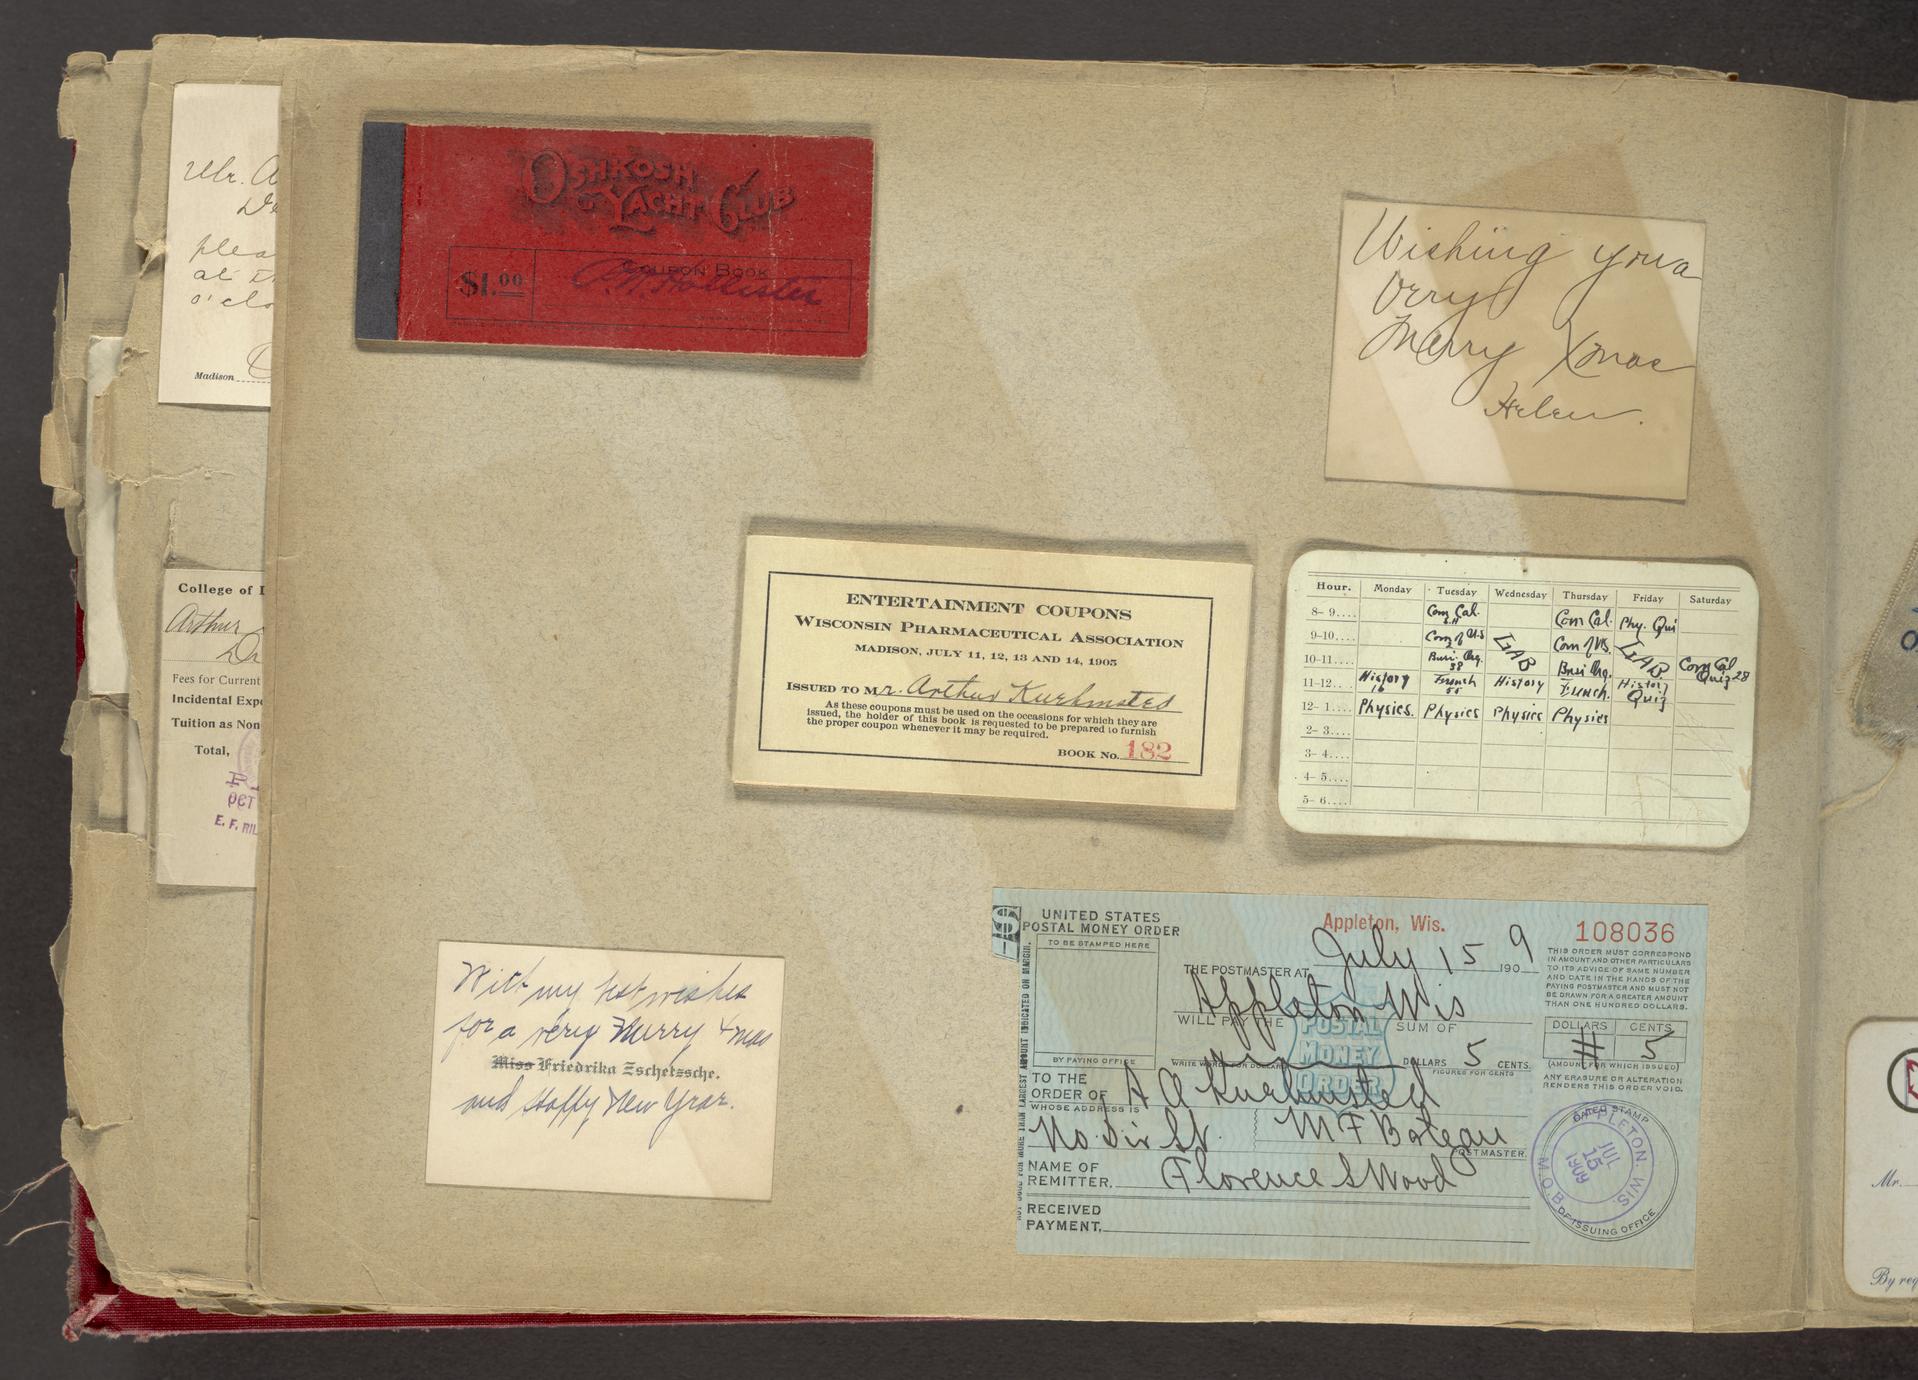 Mr. A
plea
at
o'clo
Madison
College of
Arthur
Fees for Current
Incidental Expe
Tuition as Non
Total,
OCT
E. F. RIL
OSHKOSH
YACHT CLUB
$1.00
COUPON BOOK
Hollister
Wishing you a
Very
Merry Xmas
Helen.
ENTERTAINMENT COUPONS
WISCONSIN PHARMACEUTICAL ASSOCIATION
MADISON, JULY 11, 12, 13 AND 14, 1905
ISSUED TO Mr. Arthur Kurhmsted
As these coupons must be used on the occasions for which they are
issued, the holder of this book is requested to be prepared to furnish
the proper coupon whenever it may be required.
BOOK No. 182
Hour. Monday Tuesday Wednesday Thursday Friday Saturday
8- 9.... Com Cal. Com Cal. Phy. Qui
9-10.... Com of U.S LAB Com of U.S. LAB
10-11.... Busi Org. 38 Busi Org. Com Cal Quiz 28
11-12.... History 16 French 55 History French. History Quiz
12- 1.... Physics. Physics Physics Physics
2- 3....
3- 4....
4- 5....
5- 6....
With my best wishes
for a very Merry Xmas
Miss Friedrika Zschetzsche.
and Happy New Year.
UNITED STATES
POSTAL MONEY ORDER
TO BE STAMPED HERE
BY PAYING OFFICE
NOT GOOD FOR MORE THAN LARGEST AMOUNT INDICATED ON MARGIN.
Appleton, Wis.
108036
July 15 1909
THE POSTMASTER AT
Appleton Wis
WILL PAY THE SUM OF
POSTAL
MONEY
ORDER
DOLLARS 5 CENTS.
WRITE WORDS FOR DOLLARS
FIGURES FOR CENTS
TO THE
ORDER OF A A Kurhmsted
WHOSE ADDRESS IS
No. Div St. M F
POSTMASTER.
NAME OF
REMITTER. Florence S Wood
RECEIVED
PAYMENT,
THIS ORDER MUST CORRESPOND
IN AMOUNT AND OTHER PARTICULARS
TO ITS ADVICE OF SAME NUMBER
AND DATE IN THE HANDS OF THE
PAYING POSTMASTER AND MUST NOT
BE DRAWN FOR A GREATER AMOUNT
THAN ONE HUNDRED DOLLARS.
DOLLARS CENTS
# 5
(AMOUNT FOR WHICH ISSUED)
ANY ERASURE OR ALTERATION
RENDERS THIS ORDER VOID.
DATED STAMP
APPLETON, WIS.
JUL
15
1909
M.O.B.
OF ISSUING OFFICE
Mr.
By req